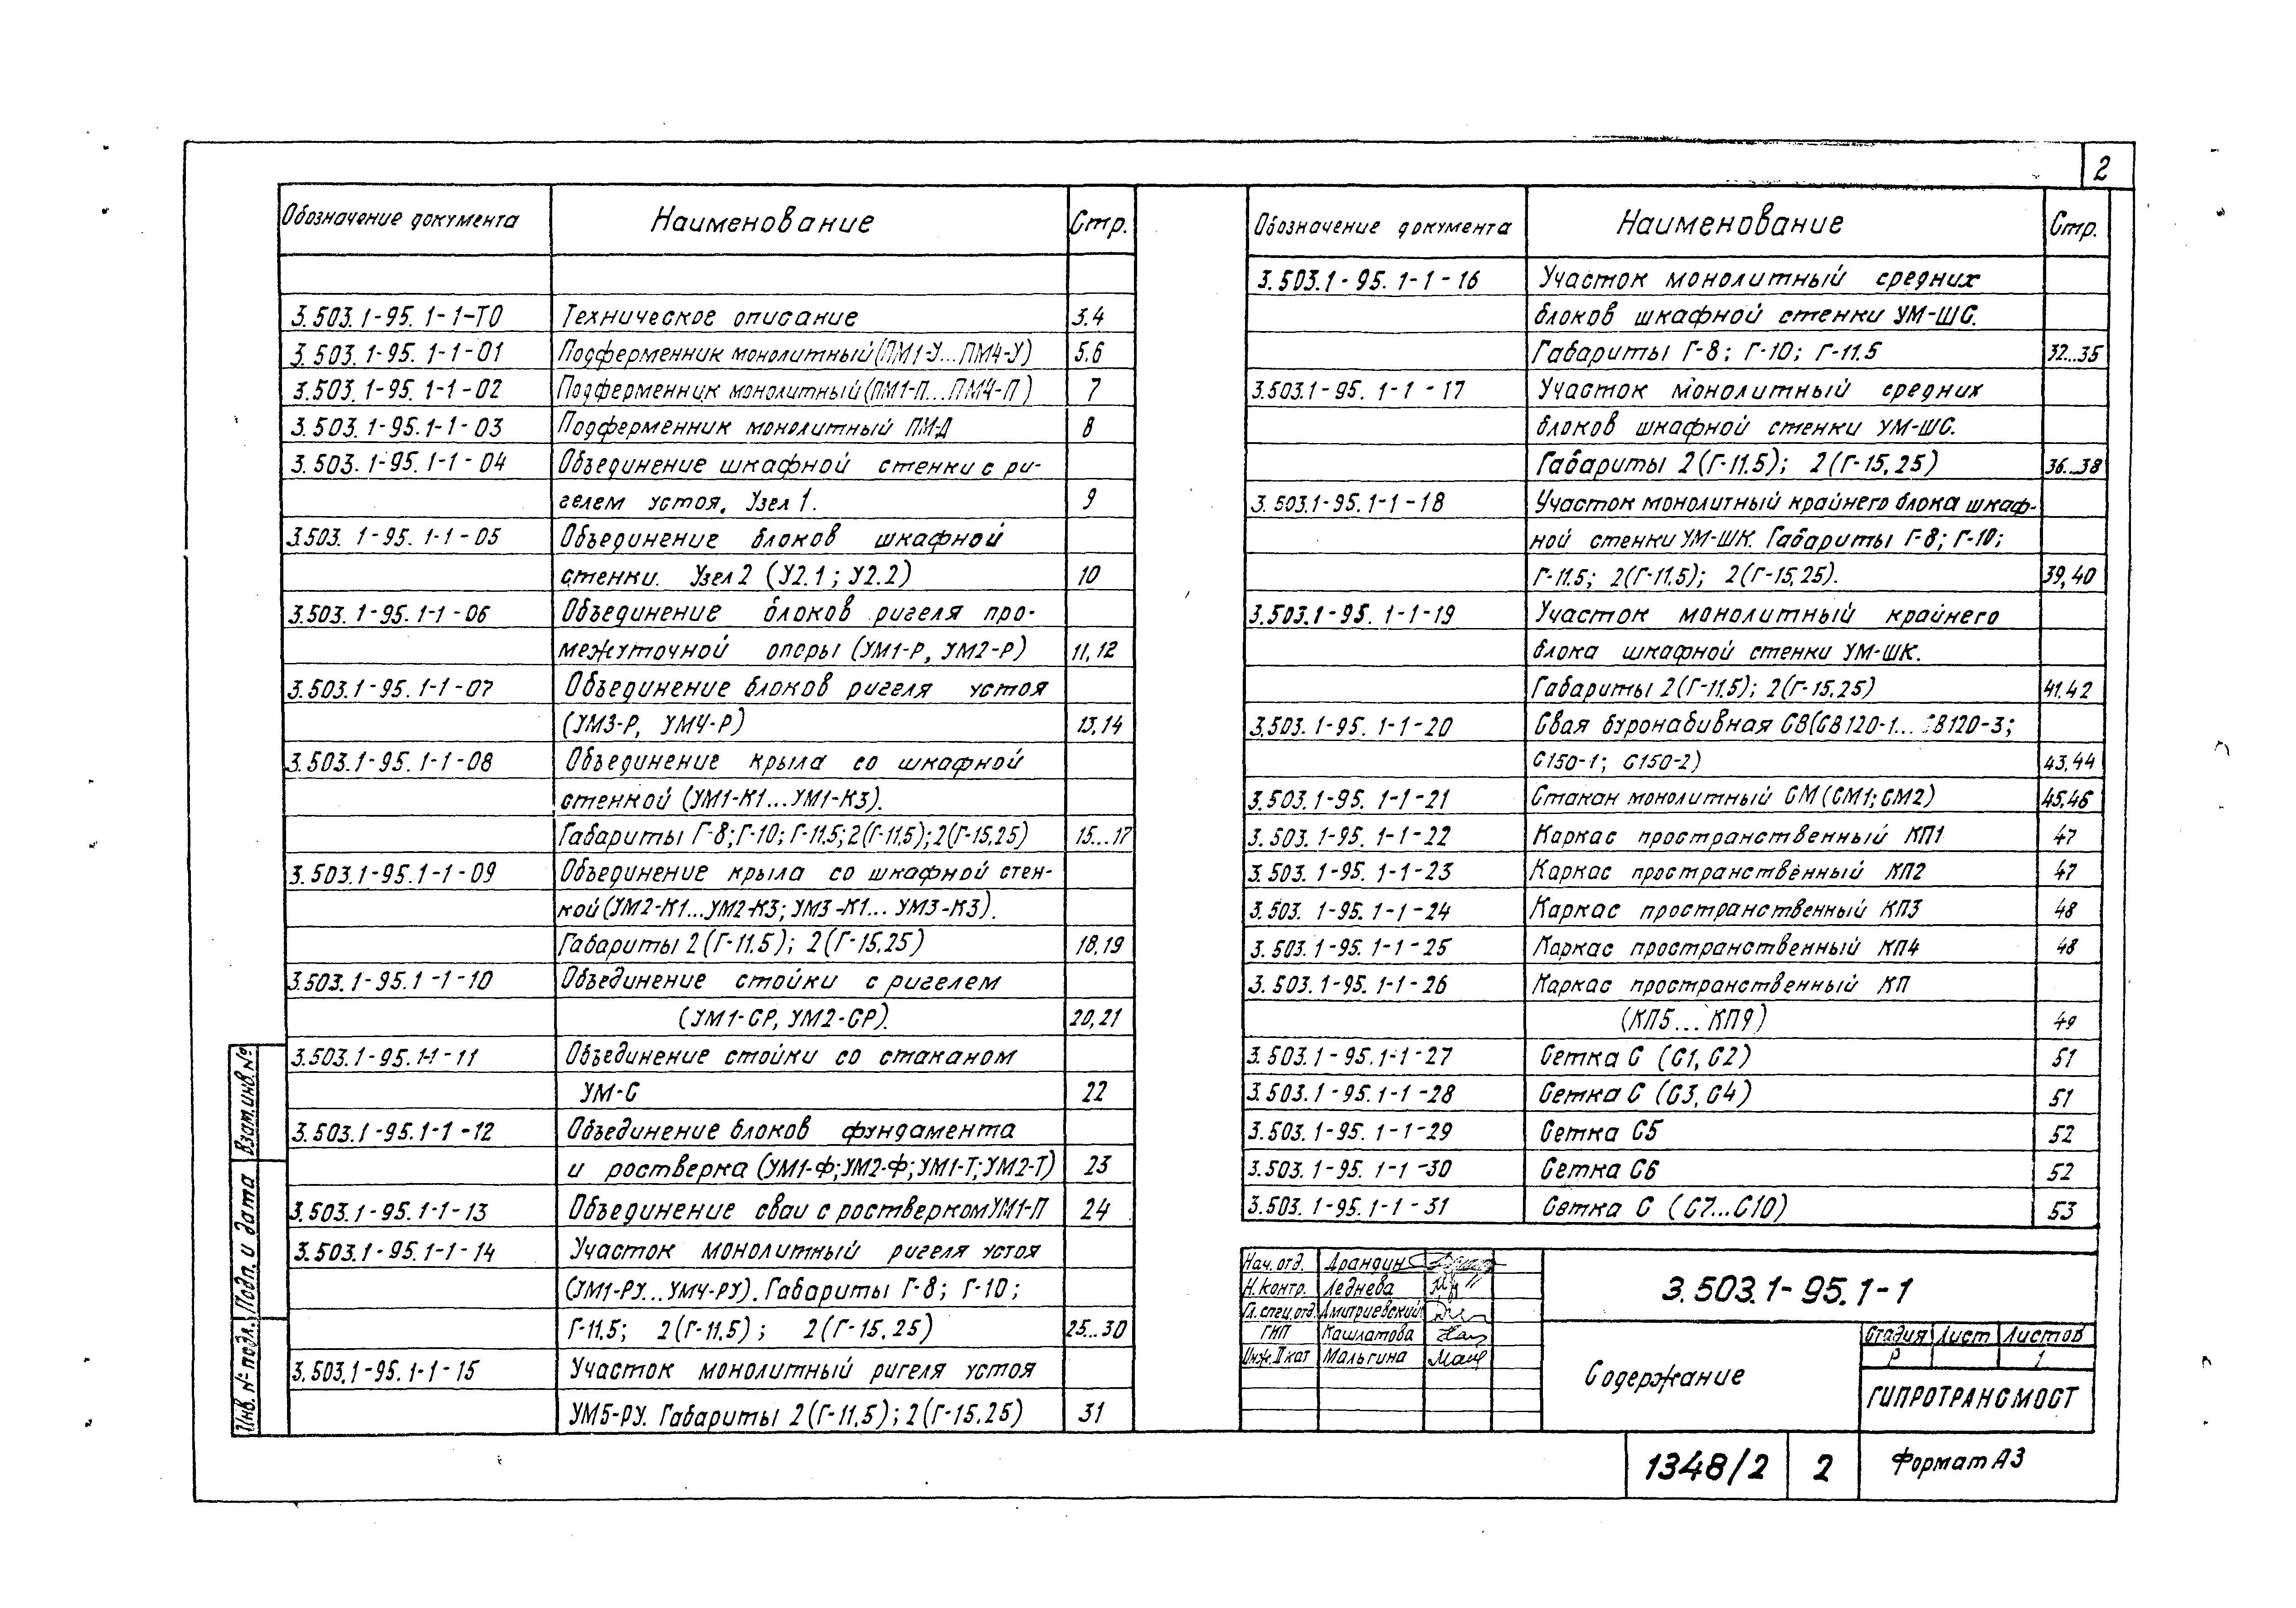 2
Обозначение документа Наименование Стр.
3.503.1-95.1-1-ТО Техническое описание 3.4
3.503.1-95.1-1-01 Подферменник монолитный (ПМ1-У...ПМ4-У) 5.6
3.503.1-95.1-1-02 Подферменник монолитный (ПМ1-П...ПМ4-П) 7
3.503.1-95.1-1-03 Подферменник монолитный ПМ-Д 8
3.503.1-95.1-1-04 Объединение шкафной стенки с ри-
гелем устоя. Узел 1. 9
3.503.1-95.1-1-05 Объединение блоков шкафной
стенки. Узел 2 (У2.1; У2.2) 10
3.503.1-95.1-1-06 Объединение блоков ригеля про-
межуточной опоры (УМ1-Р, УМ2-Р) 11,12
3.503.1-95.1-1-07 Объединение блоков ригеля устоя
(УМ3-Р, УМ4-Р) 13,14
3.503.1-95.1-1-08 Объединение крыла со шкафной
стенкой (УМ1-К1...УМ1-К3).
Габариты Г-8; Г-10; Г-11.5; 2(Г-11.5); 2(Г-15,25) 15...17
3.503.1-95.1-1-09 Объединение крыла со шкафной стен-
кой (УМ2-К1...УМ2-К3; УМ3-К1...УМ3-К3).
Габариты 2(Г-11.5); 2(Г-15.25) 18,19
3.503.1-95.1-1-10 Объединение стойки с ригелем
(УМ1-СР, УМ2-СР). 20,21
3.503.1-95.1-1-11 Объединение стойки со стаканом
УМ-С 22
3.503.1-95.1-1-12 Объединение блоков фундамента
и ростверка (УМ1-Ф; УМ2-Ф; УМ1-Т; УМ2-Т) 23
3.503.1-95.1-1-13 Объединение сваи с ростверком УМ1-П 24
3.503.1-95.1-1-14 Участок монолитный ригеля устоя
(УМ1-РУ...УМ4-РУ). Габариты Г-8; Г-10;
Г-11.5; 2(Г-11.5); 2(Г-15.25) 25...30
3.503.1-95.1-1-15 Участок монолитный ригеля устоя
УМ5-РУ. Габариты 2(Г-11.5); 2(Г-15.25) 31
Обозначение документа Наименование Стр.
3.503.1-95.1-1-16 Участок монолитный средних
блоков шкафной стенки УМ-ШС.
Габариты Г-8; Г-10; Г-11.5 32...35
3.503.1-95.1-1-17 Участок монолитный средних
блоков шкафной стенки УМ-ШС.
Габариты 2(Г-11.5); 2(Г-15,25) 36...38
3.503.1-95.1-1-18 Участок монолитный крайнего блока шкаф-
ной стенки УМ-ШК. Габариты Г-8; Г-10;
Г-11.5; 2(Г-11.5); 2(Г-15,25). 39,40
3.503.1-95.1-1-19 Участок монолитный крайнего
блока шкафной стенки УМ-ШК.
Габариты 2(Г-11.5); 2(Г-15.25) 41.42
3.503.1-95.1-1-20 Свая буронабивная СВ(СВ120-1...СВ120-3;
С150-1; С150-2) 43,44
3.503.1-95.1-1-21 Стакан монолитный СМ (СМ1; СМ2) 45,46
3.503.1-95.1-1-22 Каркас пространственный КП1 47
3.503.1-95.1-1-23 Каркас пространственный КП2 47
3.503.1-95.1-1-24 Каркас пространственный КП3 48
3.503.1-95.1-1-25 Каркас пространственный КП4 48
3.503.1-95.1-1-26 Каркас пространственный КП
(КП5...КП9) 49
3.503.1-95.1-1-27 Сетка С (С1, С2) 51
3.503.1-95.1-1-28 Сетка С (С3, С4) 51
3.503.1-95.1-1-29 Сетка С5 52
3.503.1-95.1-1-30 Сетка С6 52
3.503.1-95.1-1-31 Сетка С (С7...С10) 53
Нач. отд. Драндин
Н.контр. Леднева
Гл.спец.отд. Дмитриевский
ГИП Кашлатова
Инж. II кат Мальгина
3.503.1-95.1-1
Содержание
Стадия Лист Листов
Р 1
ГИПРОТРАНСМОСТ
1348/2 2 Формат А3
Взам.инв.№
Подп. и дата
Инв. № подл.